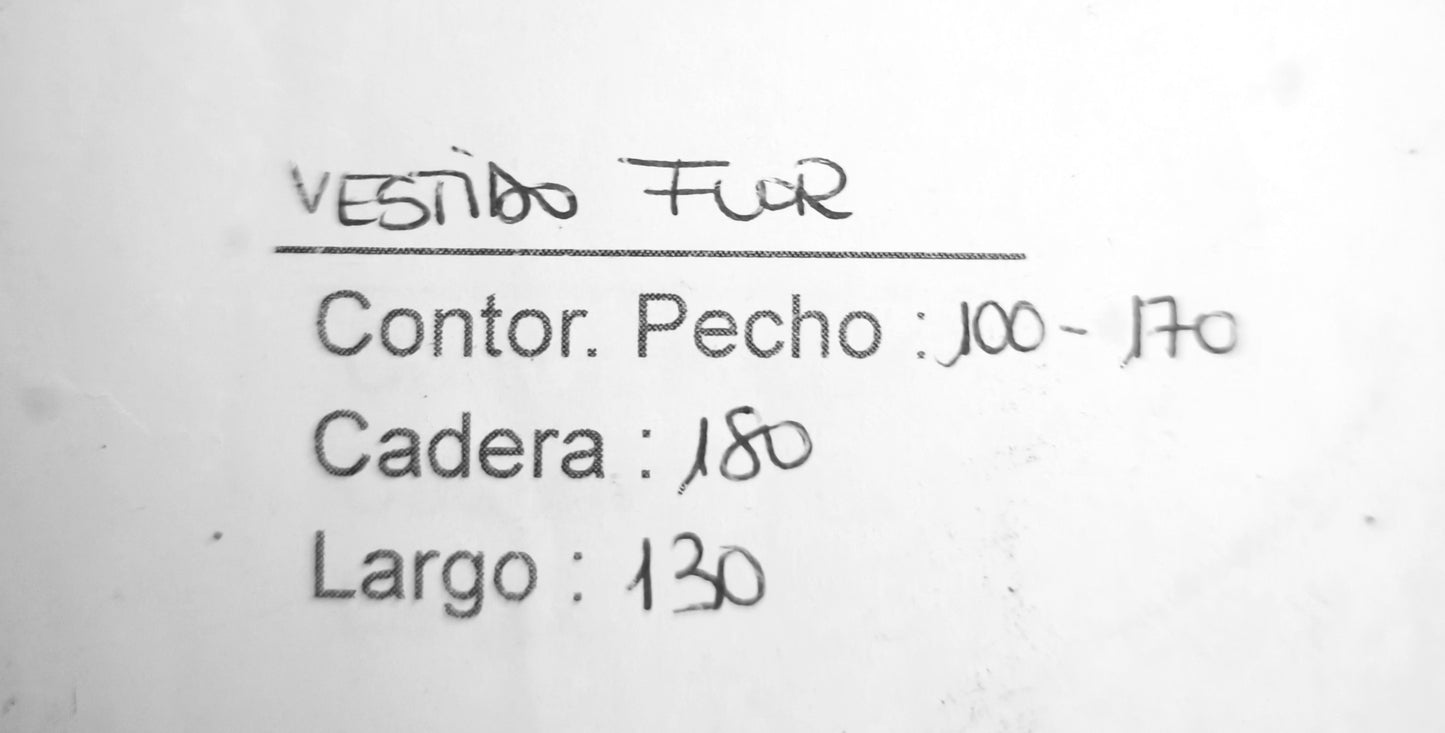 VESTIDO FLOR
Contor. Pecho : 100 - 170
Cadera : 180
Largo : 130